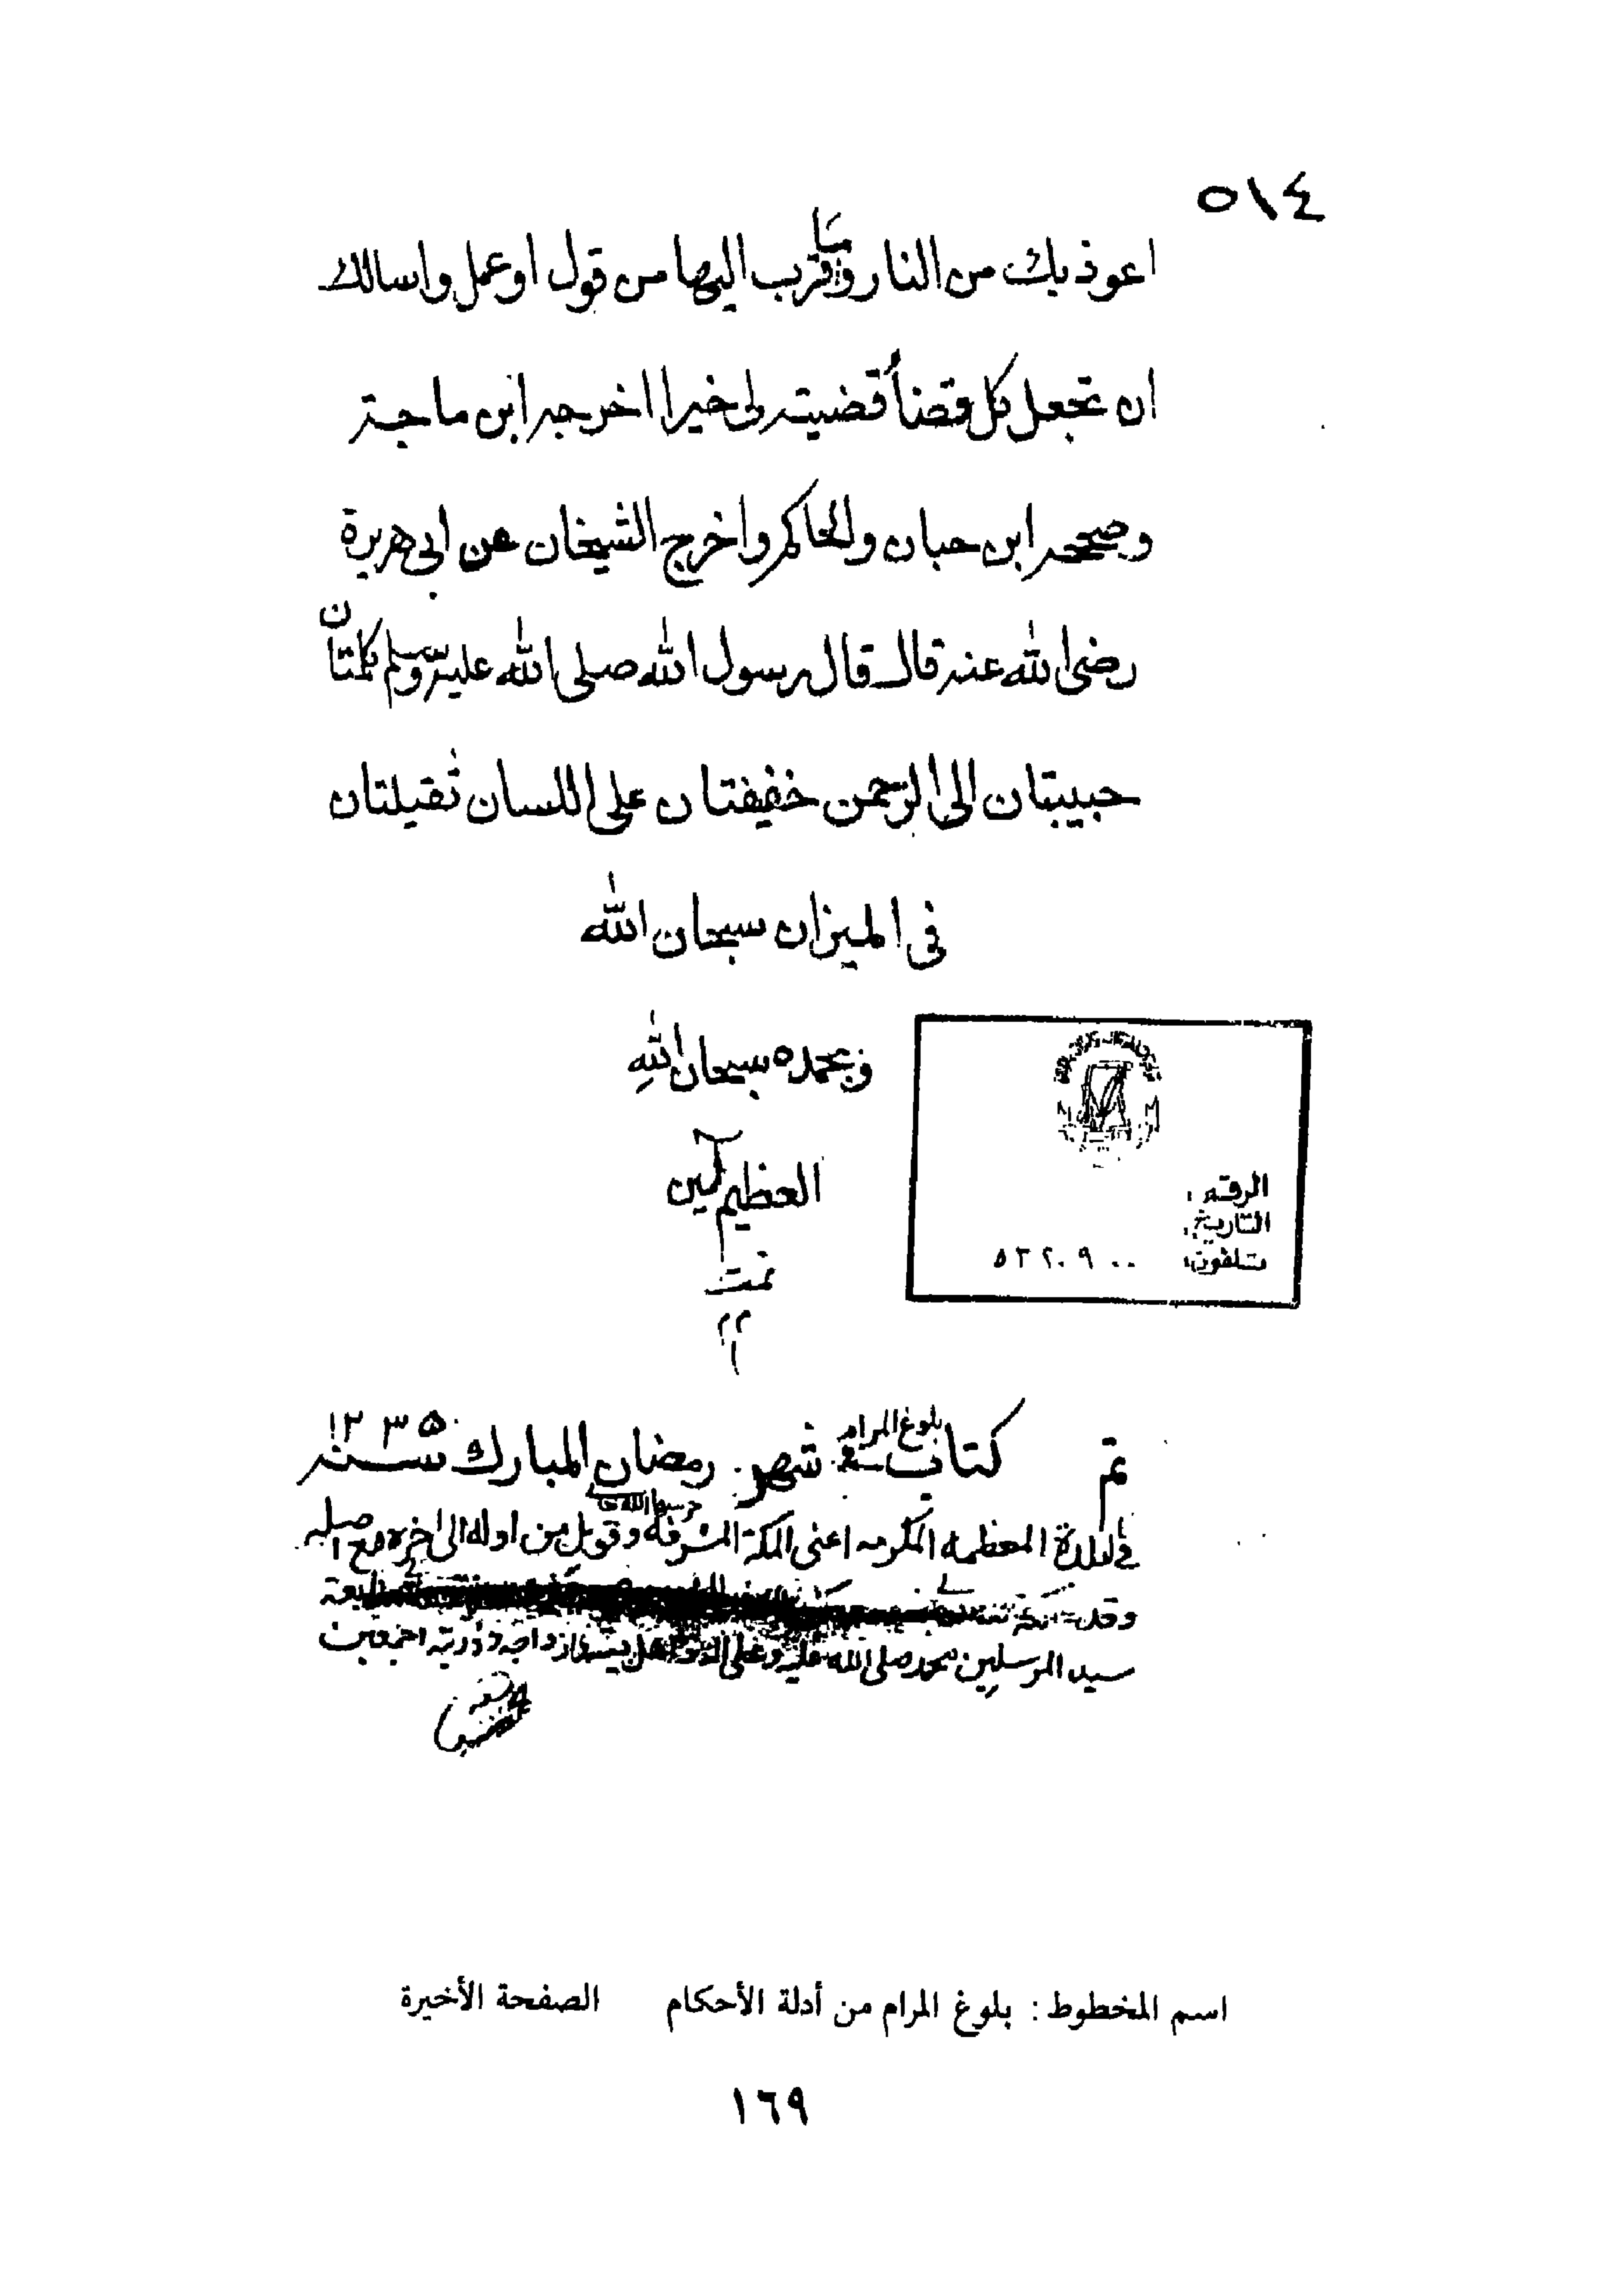 ٥١٤
اعوذ بك من النار وما قرب اليها من قول او عمل واسالك
ان تجعل كل قضاء قضيته لى خيرا اخرجه ابن ماجة
وصححه ابن حبان والحاكم واخرج الشيخان عن ابى هريرة
رضى الله عنه قال قال رسول الله صلى الله عليه وسلم كلمتان
حبيبتان الى الرحمن خفيفتان على اللسان ثقيلتان
فى الميزان سبحان الله
وبحمده سبحان الله
العظيم آمين
تمت
الرقم :
التاريخ:
تلفون: ٥٣٢٠٩٠٠
تم كتاب بلوغ المرام فى شهر رمضان المبارك سنه ١٢٣٥
فى البلدة المعظمه المكرمه اعنى المكة المشرفة حرسها الله وقوبل من اوله الى اخره مع اصله
وقد
سيد المرسلين محمد صلى الله عليه وعلى اله واهل بيته وازواجه وذريته اجمعين
اسم المخطوط : بلوغ المرام من أدلة الأحكام الصفحة الأخيرة
١٦٩